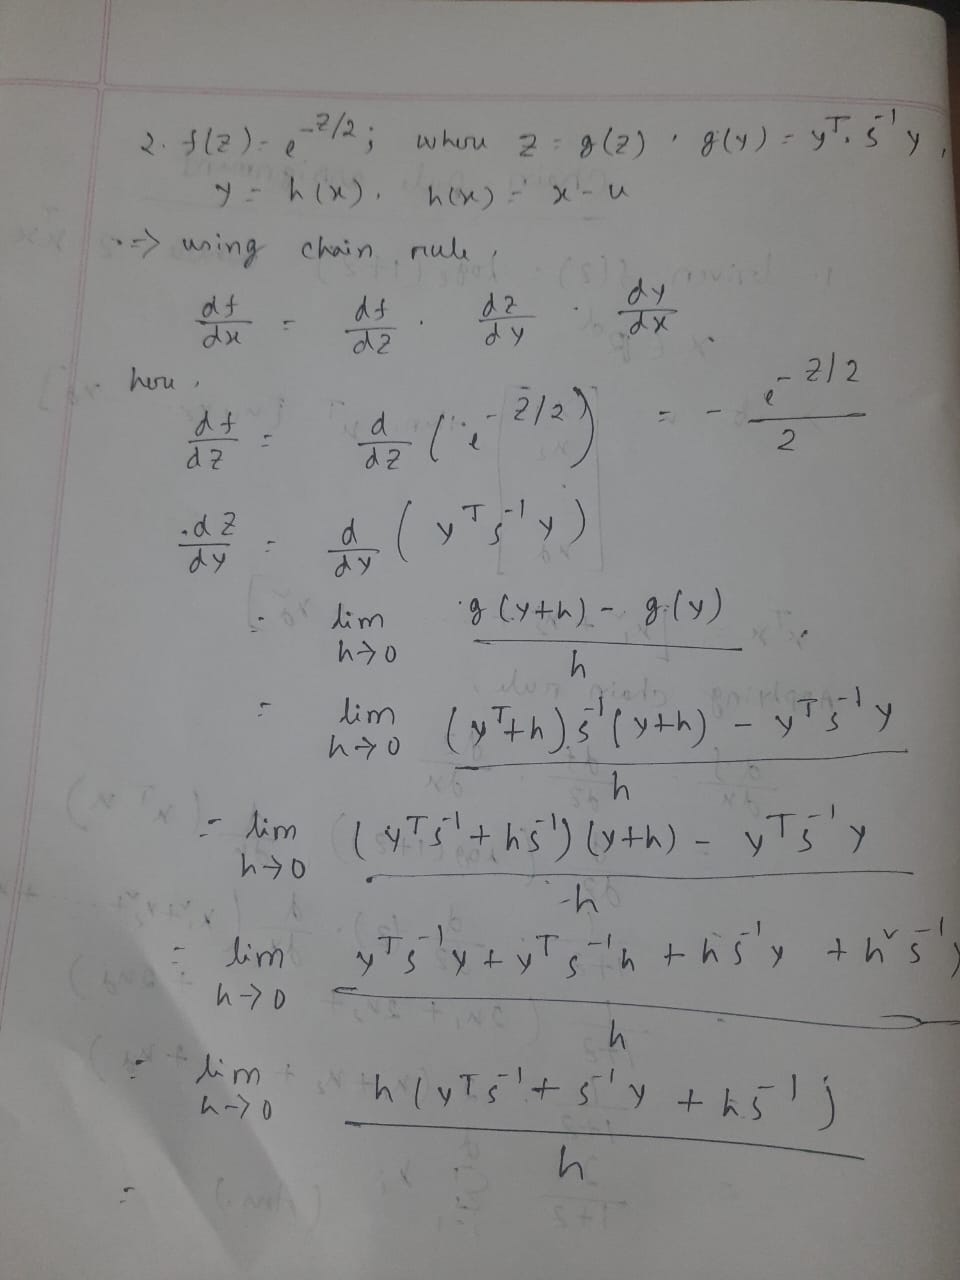 2. f(z) = e^{-z/2}; where z = g(z), g(y) = y^T. s^{-1} y,
y = h(x). h(x) = x - u
=> using chain rule,
df/dx = df/dz . dz/dy . dy/dx.
here,
df/dz = d/dz (e^{-z/2}) = - e^{-z/2}/2
dz/dy = d/dy (y^T s^{-1} y)
= lim h→0 g(y+h) - g(y) / h
= lim h→0 (y^T+h) s^{-1} (y+h) - y^T s^{-1} y / h
= lim h→0 (y^T s^{-1} + h s^{-1}) (y+h) - y^T s^{-1} y / h
= lim h→0 y^T s^{-1} y + y^T s^{-1} h + h s^{-1} y + h^2 s^{-1} / h
= lim h→0 h (y^T s^{-1} + s^{-1} y + h s^{-1}) / h
=